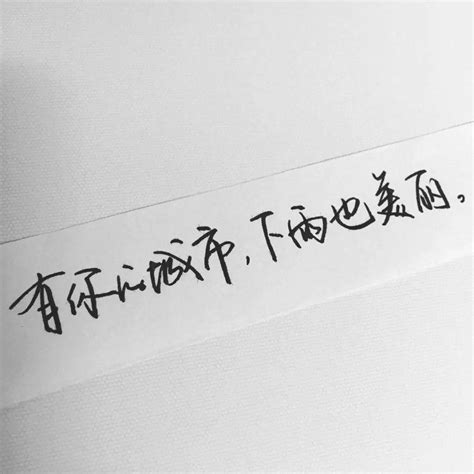 有你的城市，下雨也美丽。